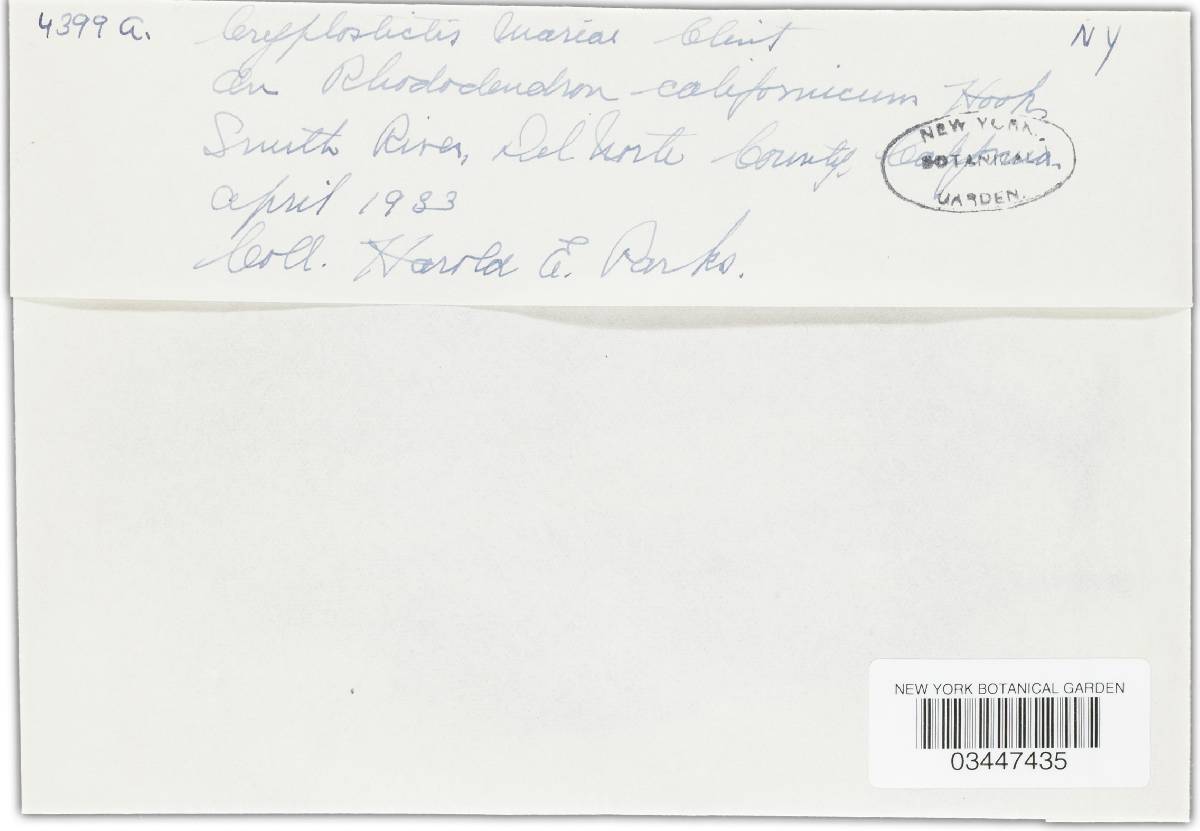 4399 a. Cryptostictis Mariae Clint NY
On Rhododendron californicum Hook.
Smith River, Del Norte County, California.
April 1933
Coll. Harold E. Parks.
NEW YORK
BOTANICAL
GARDEN.
NEW YORK BOTANICAL GARDEN
03447435